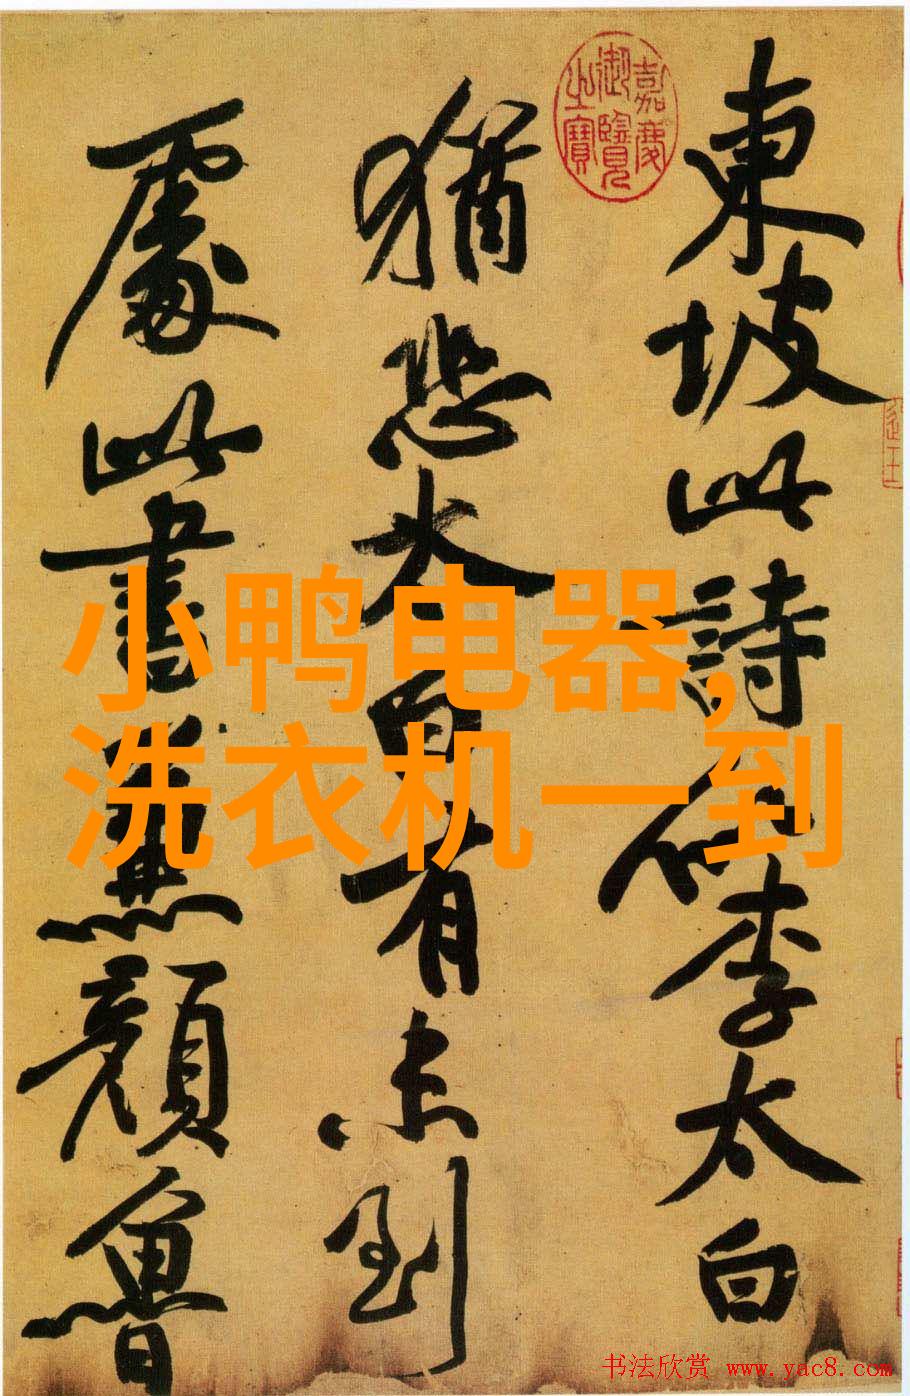 東坡此詩似李太白
猶恐太白有未到
處此書兼顏魯
嘉慶
御覽
之寶
小鸭电器,
洗衣机一到
书法欣赏 www.yac8.com